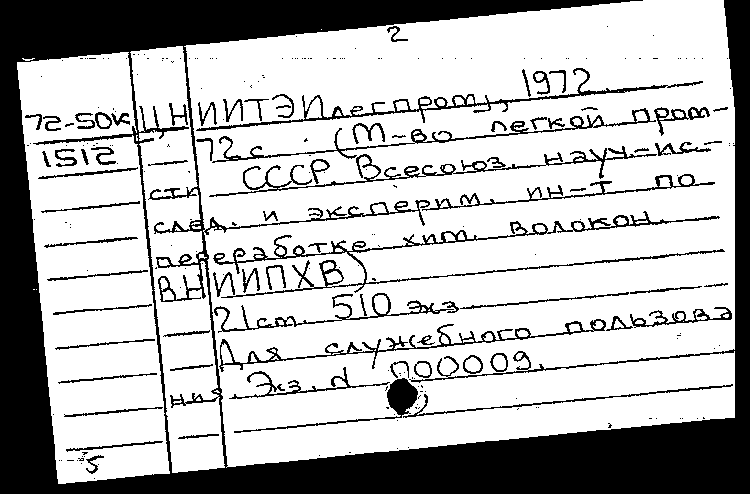 2
72-50к ЦНИИТЭИлегпром, 1972.
1512 72с. (М-во легкой пром-
сти СССР. Всесоюз. науч.-ис-
след. и эксперим. ин-т по
переработке хим. волокон.
ВНИИПХВ).
21см. 510 экз.
Для служебного пользова
ния. Экз. N 000009.
5